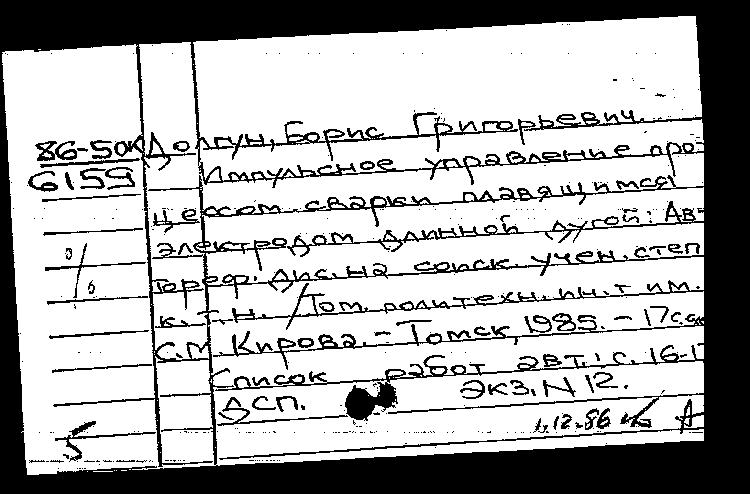 86-50к Долгун, Борис Григорьевич.
6159 Импульсное управление про-
цессом сварки плавящимся
электродом длинной дугой: Ав-
тореф. дис. на соиск. учен. степ.
к.т.н. / Том. политехн. ин.т им.
С.М. Кирова. - Томск, 1985. - 17с.
Список работ авт.: с. 16-17
ДСП. ЭКЗ. N 12.
1.12.86 А
5